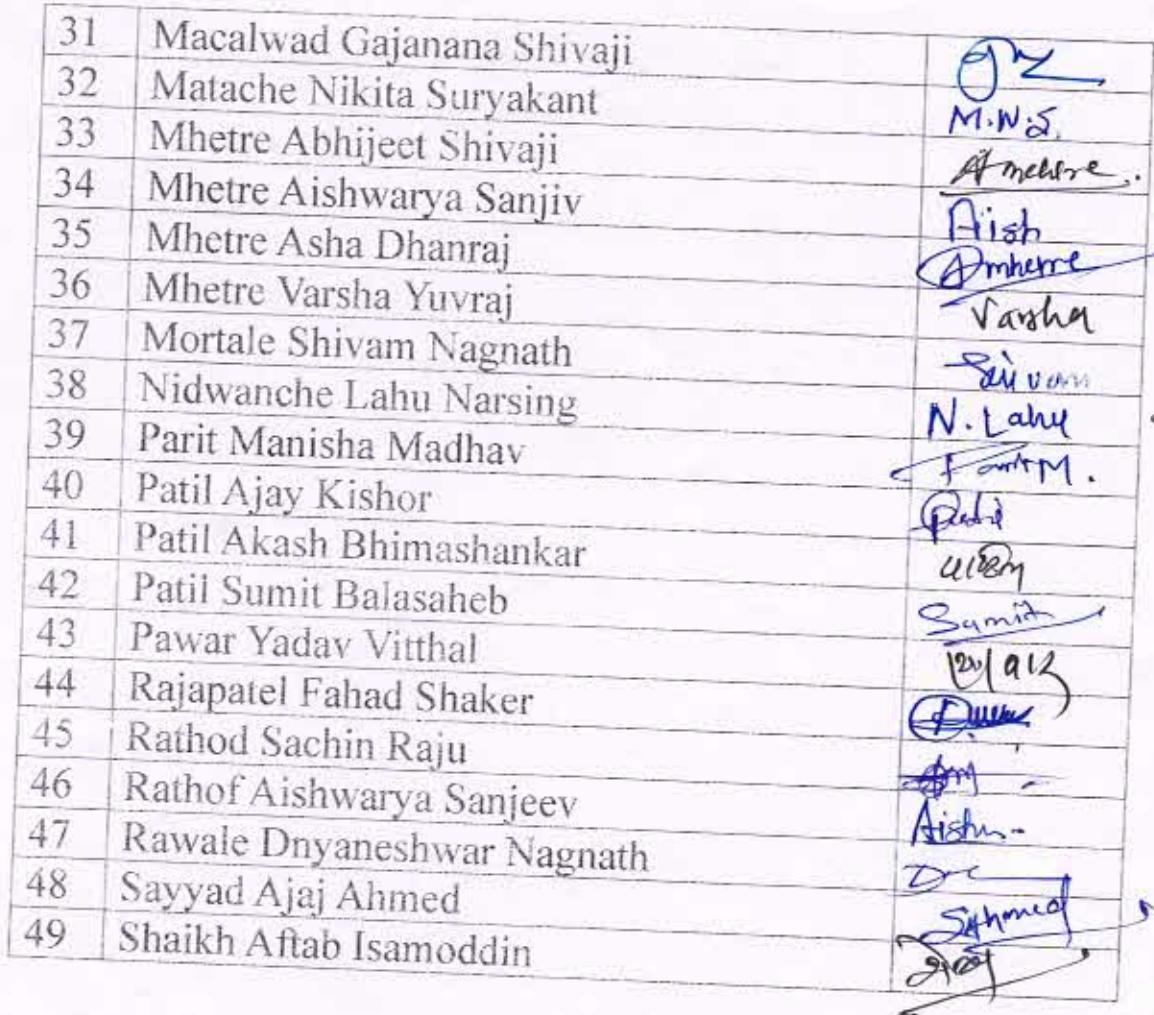 31 Macalwad Gajanana Shivaji
32 Matache Nikita Suryakant M.N.S.
33 Mhetre Abhijeet Shivaji
34 Mhetre Aishwarya Sanjiv Aish
35 Mhetre Asha Dhanraj Amhetre
36 Mhetre Varsha Yuvraj Varsha
37 Mortale Shivam Nagnath
38 Nidwanche Lahu Narsing N. Lahu
39 Parit Manisha Madhav Parit M.
40 Patil Ajay Kishor
41 Patil Akash Bhimashankar
42 Patil Sumit Balasaheb Sumit
43 Pawar Yadav Vitthal
44 Rajapatel Fahad Shaker
45 Rathod Sachin Raju
46 Rathof Aishwarya Sanjeev
47 Rawale Dnyaneshwar Nagnath
48 Sayyad Ajaj Ahmed SAhmed
49 Shaikh Aftab Isamoddin